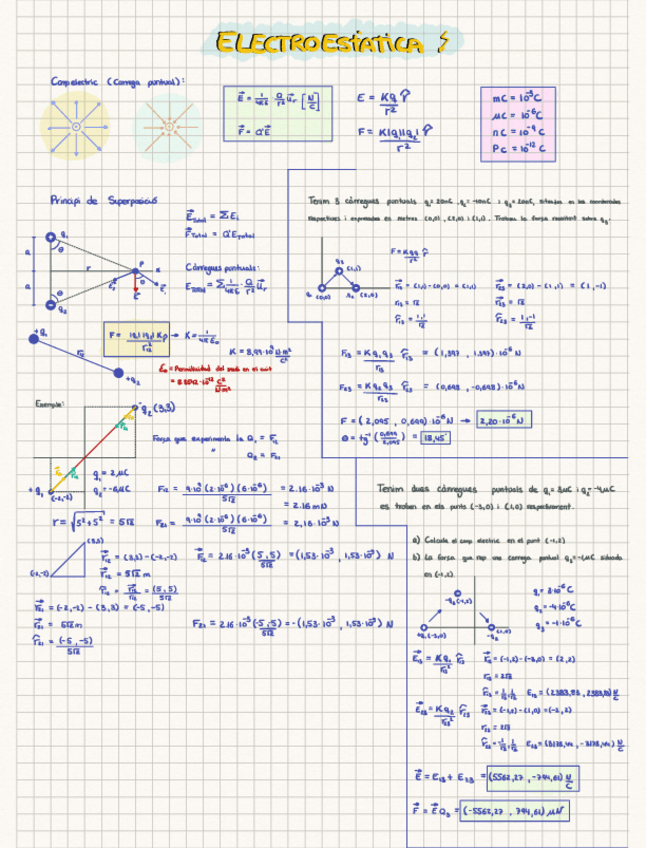 ELECTROESTÀTICA
Camp elèctric (Càrrega puntual):
E = 1/4πε Q/r² ûr [N/C]
F = Q'E
E = KQ/r² r̂
F = K|Q||q|/r² r̂
mC = 10⁻³C
μC = 10⁻⁶C
nC = 10⁻⁹C
pC = 10⁻¹²C
Principi de Superposició
E Total = ΣEi
F Total = Q'E Total
Càrregues puntuals:
E Total = Σ 1/4πε Q/r² ûr
K = 1/4πε₀
K = 8,99·10⁹ N m²/C²
ε₀ = Permitivitat del medi en el buit
= 8.8542·10⁻¹² C²/N m²
Exemple:
q₂ (3,3)
+q₁ (-2,-2)
Força que experimenta la Q₁ = F₁₂
" Q₂ = F₂₁
q₁ = 2μC
q₂ = -6μC
F₁₂ = 9·10⁹ (2·10⁻⁶)(6·10⁻⁶) / 5√2 = 2.16·10⁻³ N
= 2.16 mN
r = √5²+5² = 5√2
F₂₁ = 9·10⁹ (2·10⁻⁶)(6·10⁻⁶) / 5√2 = 2,16·10⁻³ N
(3,3)
(-2,-2)
r₁₂ = (3,3) - (-2,-2)
r₁₂ = 5√2 m
r̂₁₂ = r₁₂/r₁₂ = (5,5)/5√2
F₁₂ = 2.16·10⁻³ (5,5)/5√2 = (1,53·10⁻³, 1,53·10⁻³) N
r₂₁ = (-2,-2) - (3,3) = (-5,-5)
r₂₁ = 5√2 m
r̂₂₁ = (-5,-5)/5√2
F₂₁ = 2.16·10⁻³ (-5,-5)/5√2 = -(1,53·10⁻³, 1,53·10⁻³) N
Tenim 3 càrregues puntuals
respectives i expressades en metres (0,0), (2,0) i (1,1). Trobeu la força resultant sobre q₃.
r₁₃ = (1,1) - (0,0) = (1,1)
r₁₃ = √2
F₁₃ = K q₁ q₃/r₁₃ r̂₁₃ = (1,397, 1,397)·10⁻⁶ N
F₂₃ = K q₂ q₃/r₂₃ r̂₂₃ = (0,698, -0,698)·10⁻⁶ N
F = (2,095, 0,699)·10⁻⁶ N → 2,20·10⁻⁶ N
θ = tg⁻¹(0,699/2,095) = 18,45°
Tenim dues càrregues puntuals de q₁ = 3μC i q₂ = -4μC
es troben en els punts (-3,0) i (1,0) respectivament.
a) Calcula el camp elèctric en el punt (-1,2)
b) La força que rep una càrrega puntual q₃ = -1μC situada
en (-1,2)
q₁ = 3·10⁻⁶C
q₂ = -4·10⁻⁶C
q₃ = -1·10⁻⁶C
E₁₃ = K q₁/r₁₃² r̂₁₃
r₁₃ = (-1,2) - (-3,0) = (2,2)
r₁₃ = 2√2
E₂₃ = K q₂/r₂₃² r̂₂₃
r₂₃ = (-1,2) - (1,0) = (-2,2)
r₂₃ = 2√2
E = E₁₃ + E₂₃ = (5562,27, -794,61) N/C
F = E Q₃ = (-5562,27, 794,61) μN